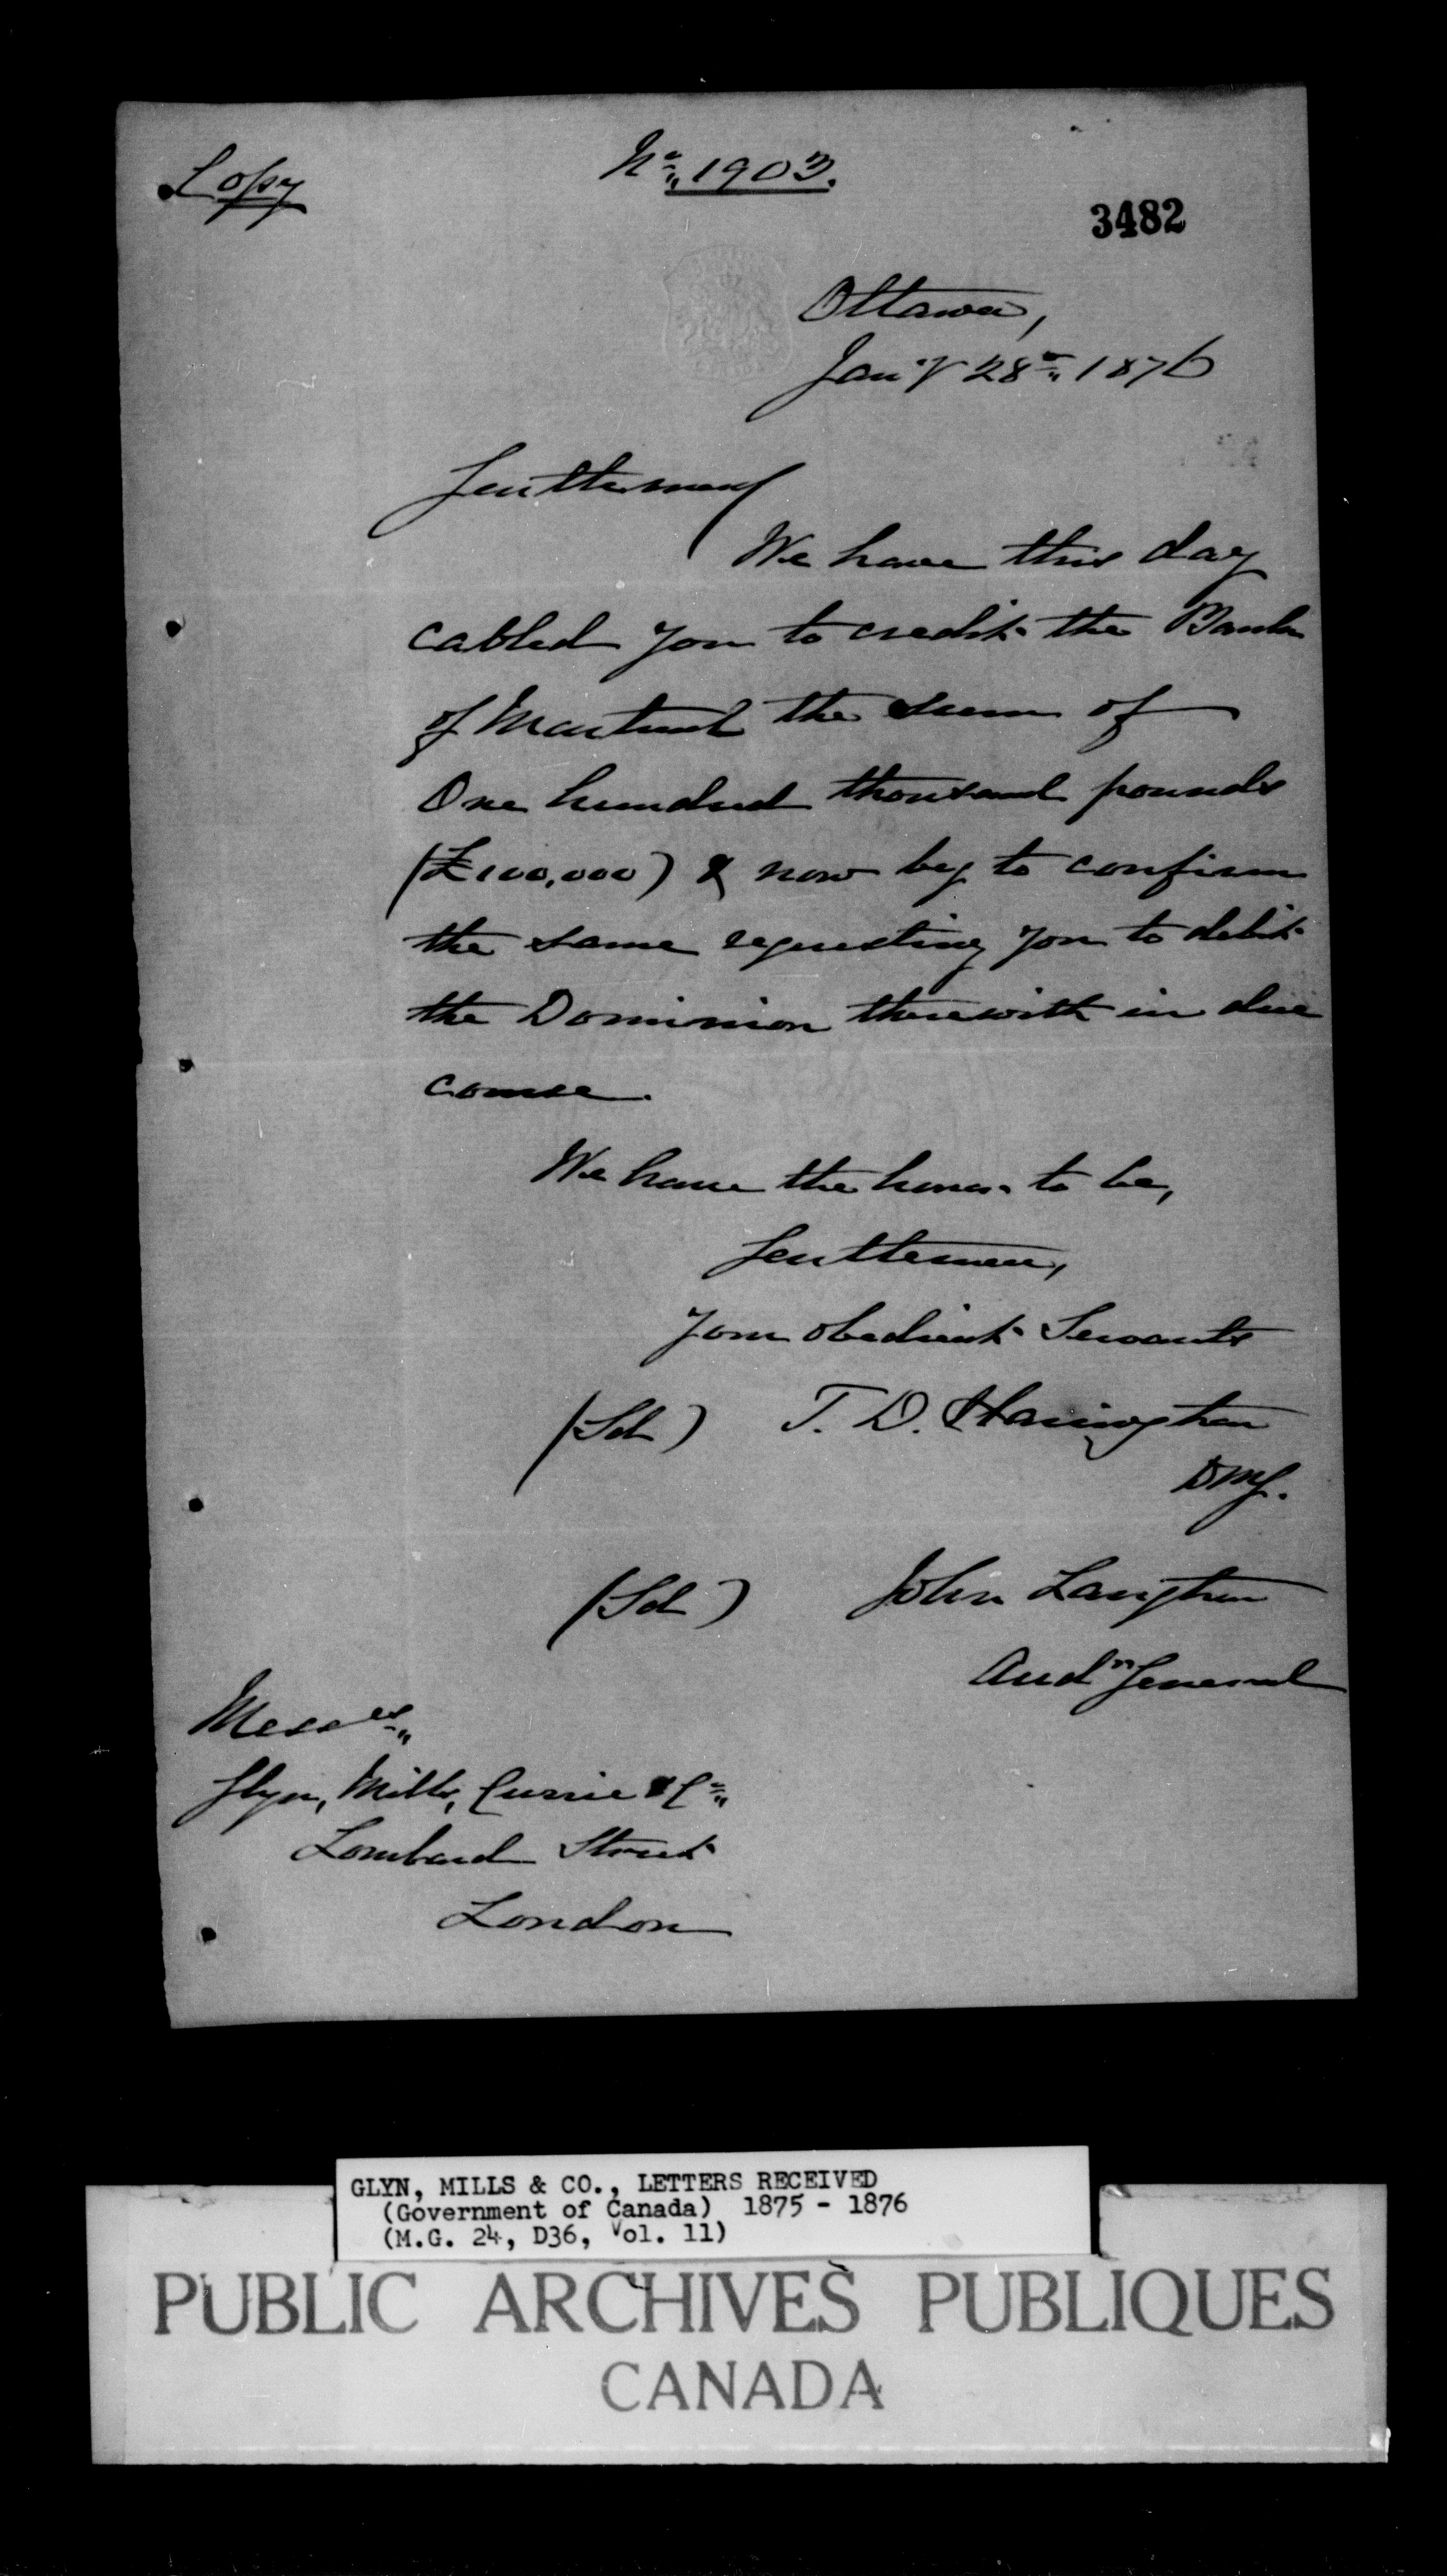 Copy
No. 1903.
3482
Ottawa,
Jan'y 28th 1876
Gentlemen
We have this day
cabled you to credit the Bank
of Montreal the sum of
One hundred thousand pounds
(£100,000) & now beg to confirm
the same requesting you to debit
the Dominion therewith in due
course.
We have the honor to be,
Gentlemen,
Your obedient Servants
(Sd) T. D. Harington
DRG.
(Sd) John Langton
Audr General
Messrs
Glyn, Mills, Currie & Co
Lombard Street
London
GLYN, MILLS & CO., LETTERS RECEIVED
(Government of Canada) 1875 - 1876
(M.G. 24, D36, Vol. 11)
PUBLIC ARCHIVES PUBLIQUES
CANADA